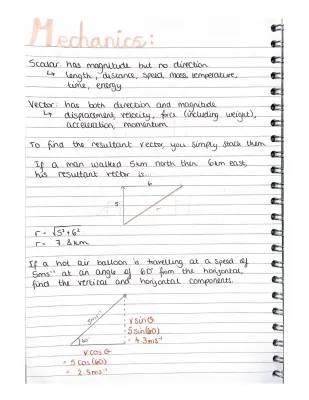 Mechanics:
Scalar: has magnitude but no direction
↳ length, distance, speed, mass, temperature,
time, energy
Vector: has both direction and magnitude
↳ displacement, velocity, force (including weight),
acceleration, momentum
To find the resultant vector, you simply stack them
If a man walked 5km north then 6km east,
his resultant vector is...
6
5
r
r = √5²+6²
r = 7.8km
If a hot air balloon is travelling at a speed of
5ms⁻¹ at an angle of 60° from the horizontal,
find the vertical and horizontal components.
5ms⁻¹
60°
v sin θ
= 5 sin(60)
= 4.3ms⁻¹
v cos θ
= 5 cos(60)
= 2.5ms⁻¹